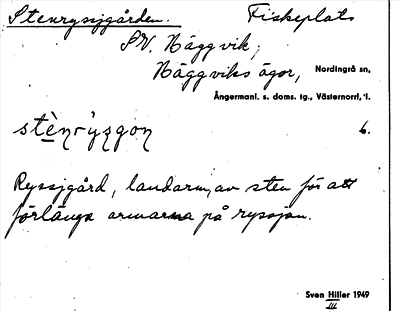 Stenrysjgården. Fiskeplats
SV. Häggvik,
Häggviks ägor, Nordingrå sn,
Ångermanl. s. doms. tg., Västernorrl. l.
stènrỳʒgon 6.
Ryssjgård, landarm, av sten för att
förlänga armarna på ryssjan.
Sven Hiller 1949
III